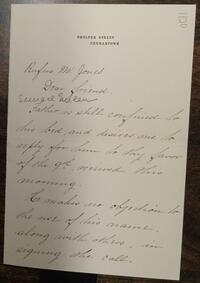 PHILIPS STREET
GERMANTOWN
Rufus M. Jones
Dear friend.
Father is still confined to
his bed, and desires me to
reply for him to thy favor
of the 9th. received this
morning.
He makes no objection to
the use of his name
along with others, in
signing the call.